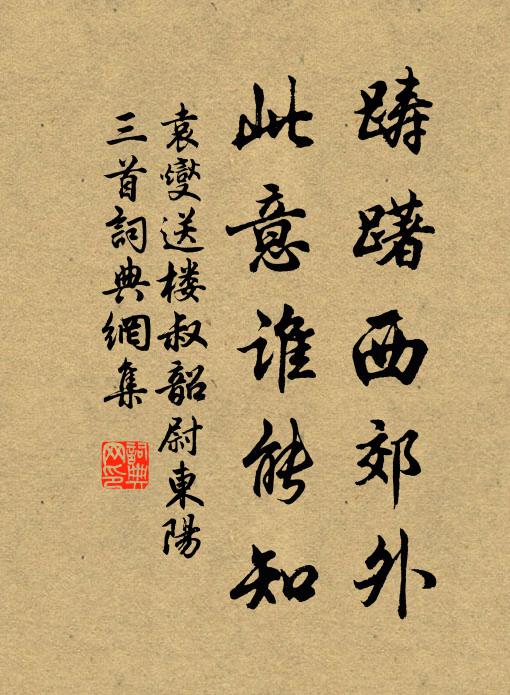 躊躇西郊外
此意誰能知
袁燮送楼叔韶尉東陽
三首詞典網集
詞典网印